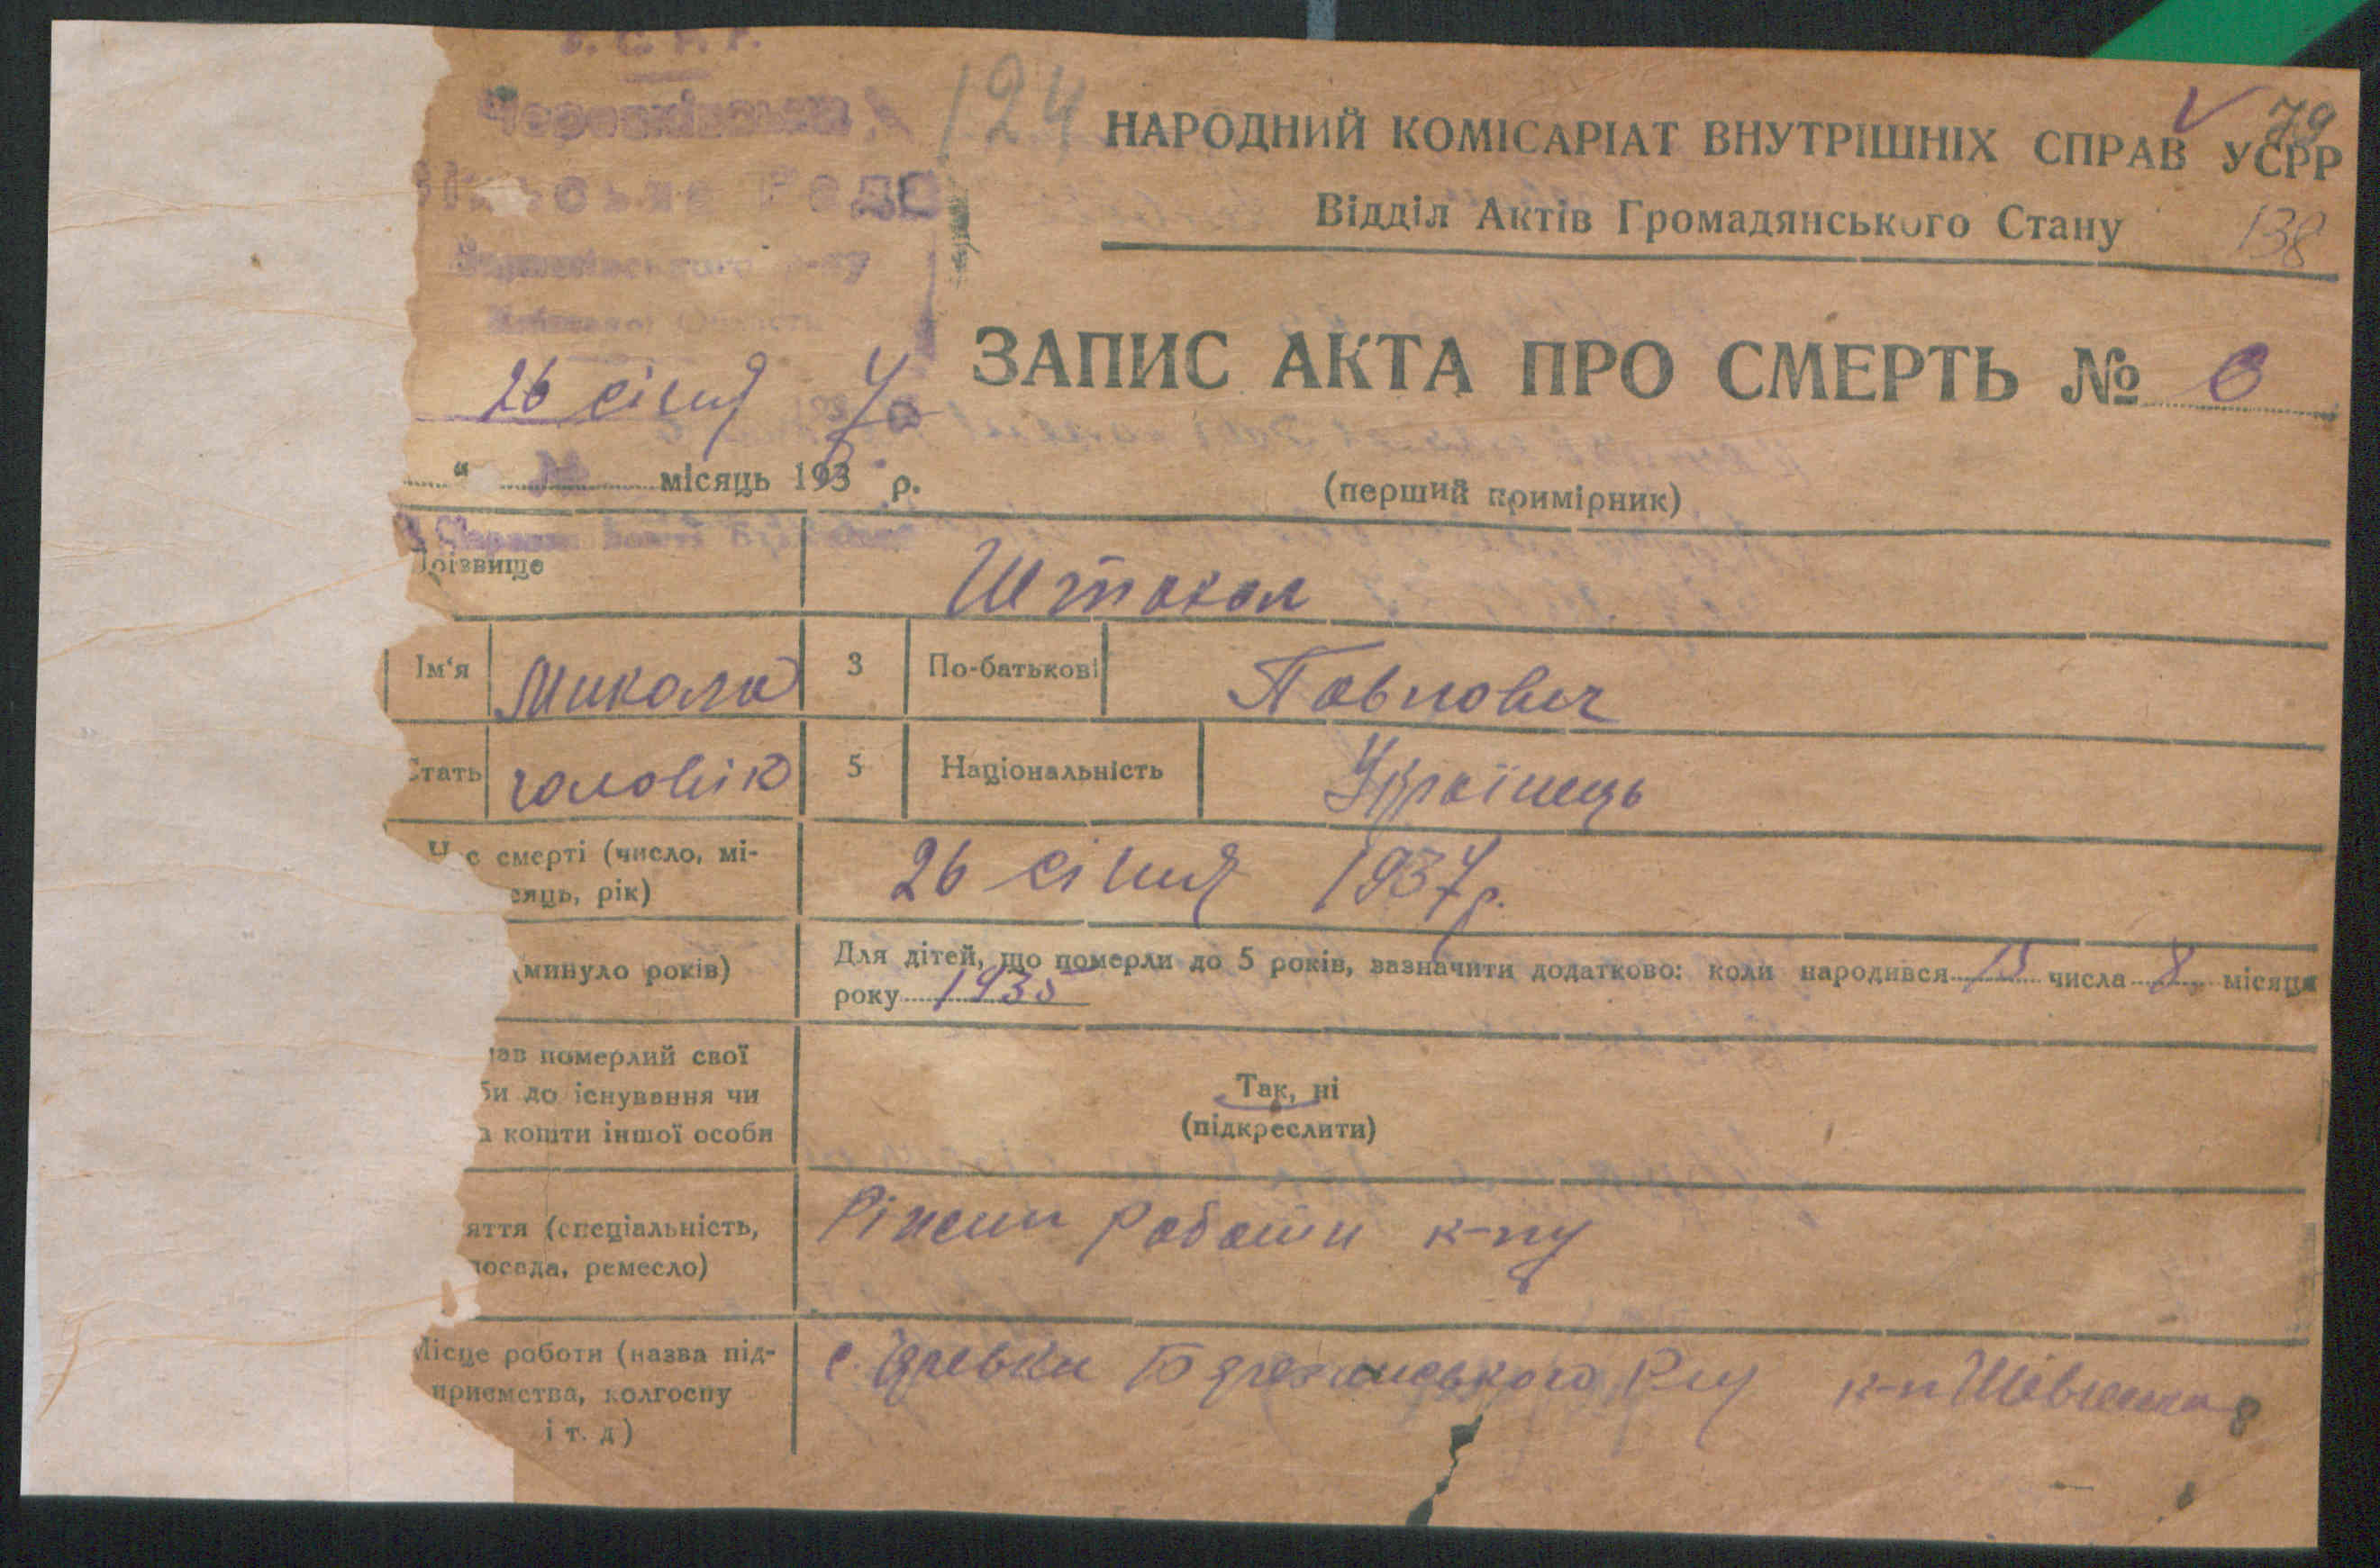 124
79
НАРОДНИЙ КОМІСАРІАТ ВНУТРІШНІХ СПРАВ УСРР
Відділ Актів Громадянського Стану
138
ЗАПИС АКТА ПРО СМЕРТЬ № 6
26 січня
" місяць 193 р.
(перший примірник)
Прізвище Штокол
Ім'я Микола 3 По-батькові Павлович
Стать чоловік 5 Національність Українець
Час смерті (число, мі-
сяць, рік)
26 січня 1937 р.
(минуло років)
Для дітей, що померли до 5 років, вазначити додатково: коли народився 15 числа 8 місяця
року 1935
ав померлий свої
би до існування чи
а кошти іншої особи
Так, ні
(підкреслити)
яття (спеціальність,
посада, ремесло)
Ріжни работи к-пу
Місце роботи (назва під-
приємства, колгоспу
і т. д)
с. к-п Шевченка